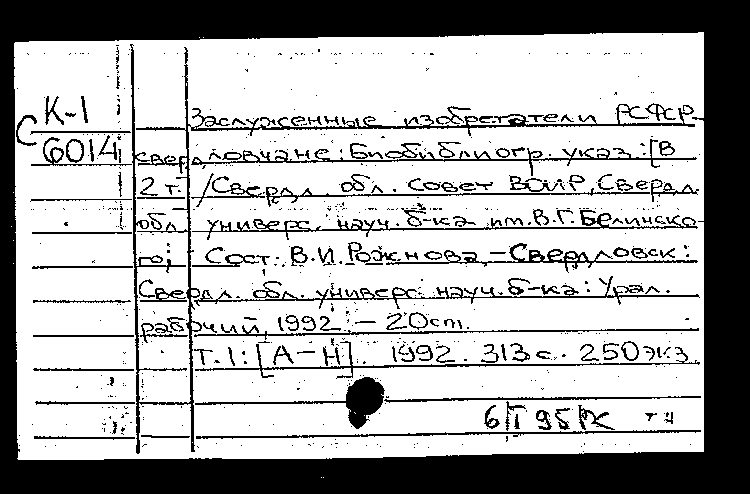 К-1
С 6014
Заслуженные изобретатели РСФСР-
свердловчане: Биобиблиогр. указ.: [В
2 т. /Свердл. обл. совет ВОИР, Свердл.
обл. универс. науч. б-ка им. В.Г. Белинско-
го; Сост. В.И. Рожнова. – Свердловск:
Свердл. обл. универс. науч. б-ка: Урал.
рабочий, 1992 – 20 cm.
Т.1: [А – Н]. 1992. 313 с. 250 экз